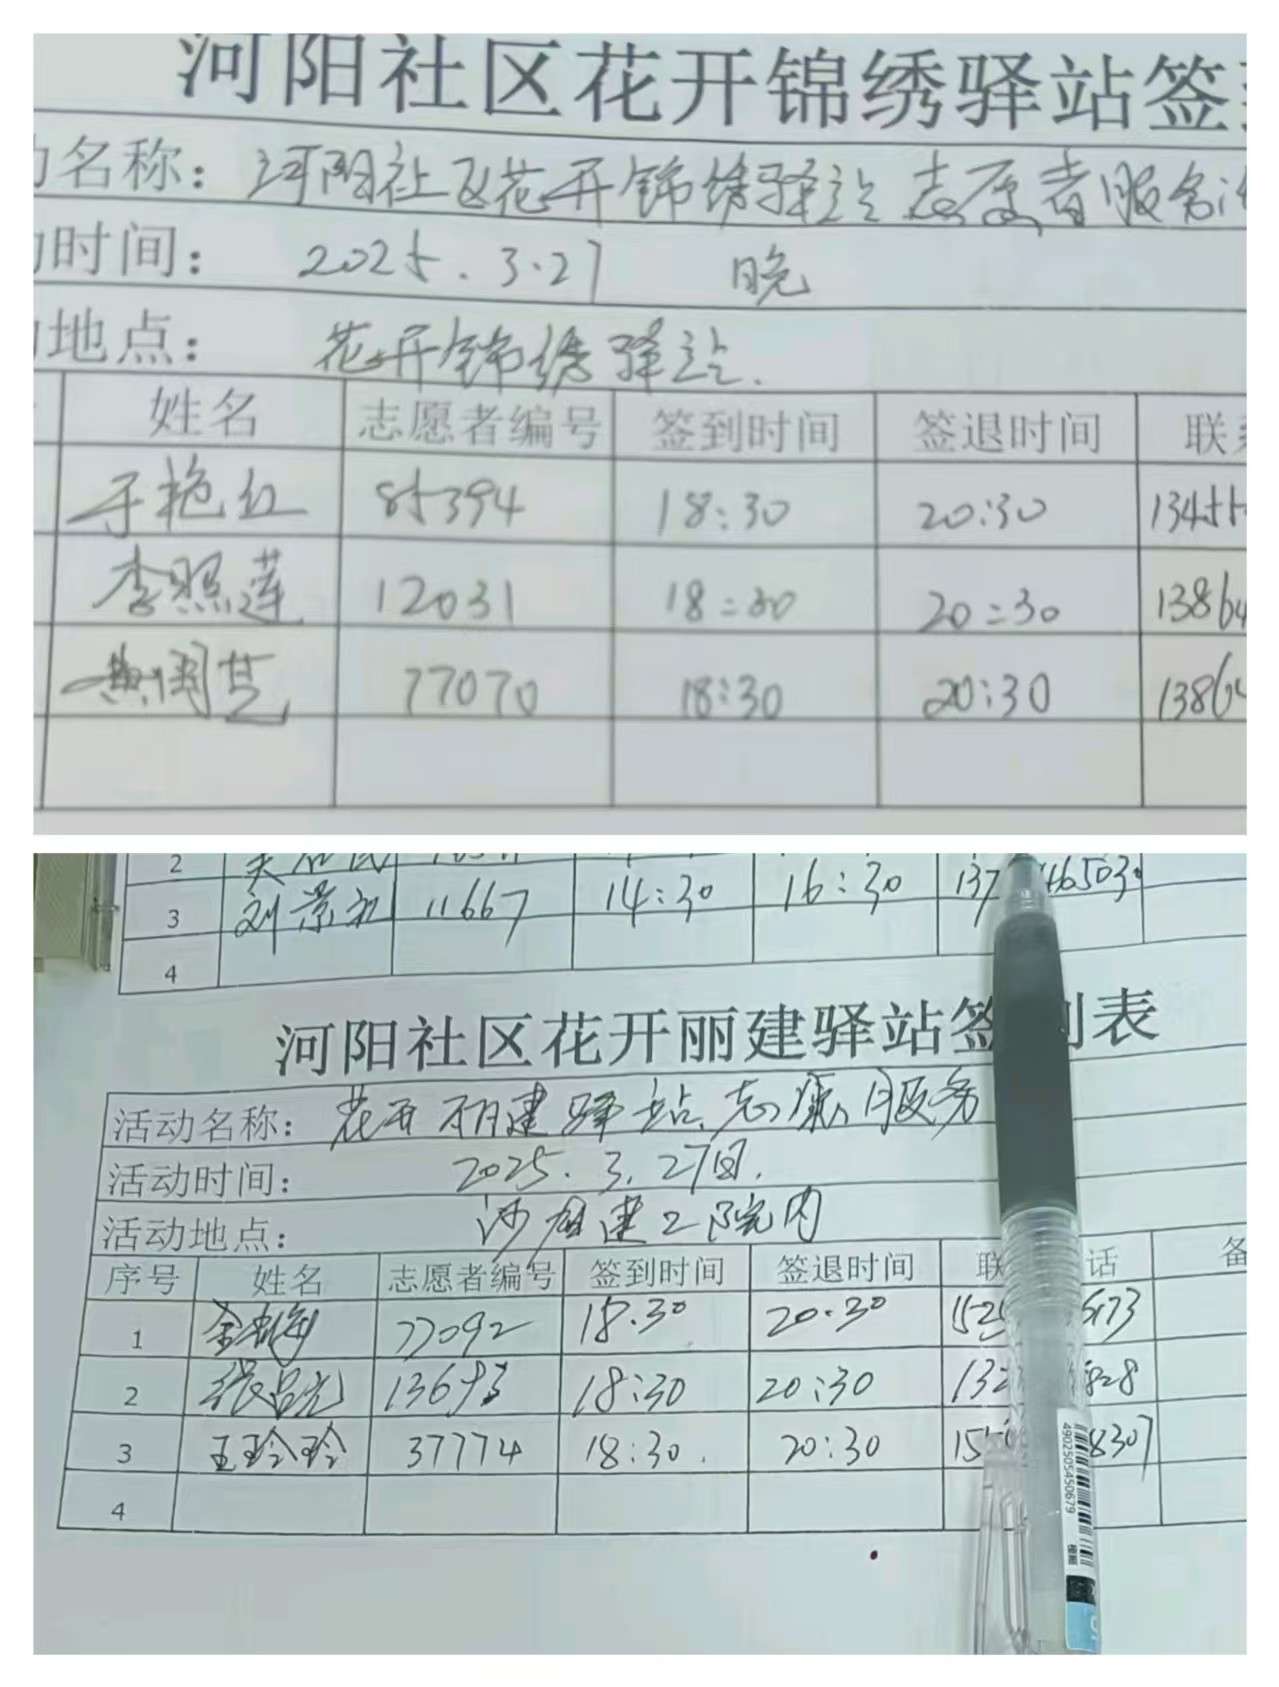 河阳社区花开锦绣驿站签到
动名称：河阳社区花开锦绣驿站志愿者服务活
动时间：2025.3.27 晚
地点：花开锦绣驿站.
姓名 志愿者编号 签到时间 签退时间 联系
于艳红 85394 18:30 20:30 13455
李照莲 12031 18:30 20:30 13864
黄闰芝 77070 18:30 20:30 13864
2
3 刘景礼 11667 14:30 16:30 137 46503
4
河阳社区花开丽建驿站签到表
活动名称：花开丽建驿站志愿服务
活动时间：2025.3.27日.
活动地点：沙厂建工院内
序号 姓名 志愿者编号 签到时间 签退时间 联 话 备
1 77092 18.30 20.30 152 673
2 张吕光 13693 18:30 20:30 132 828
3 王玲玲 37774 18:30. 20:30 15 8307
4
4902505450679